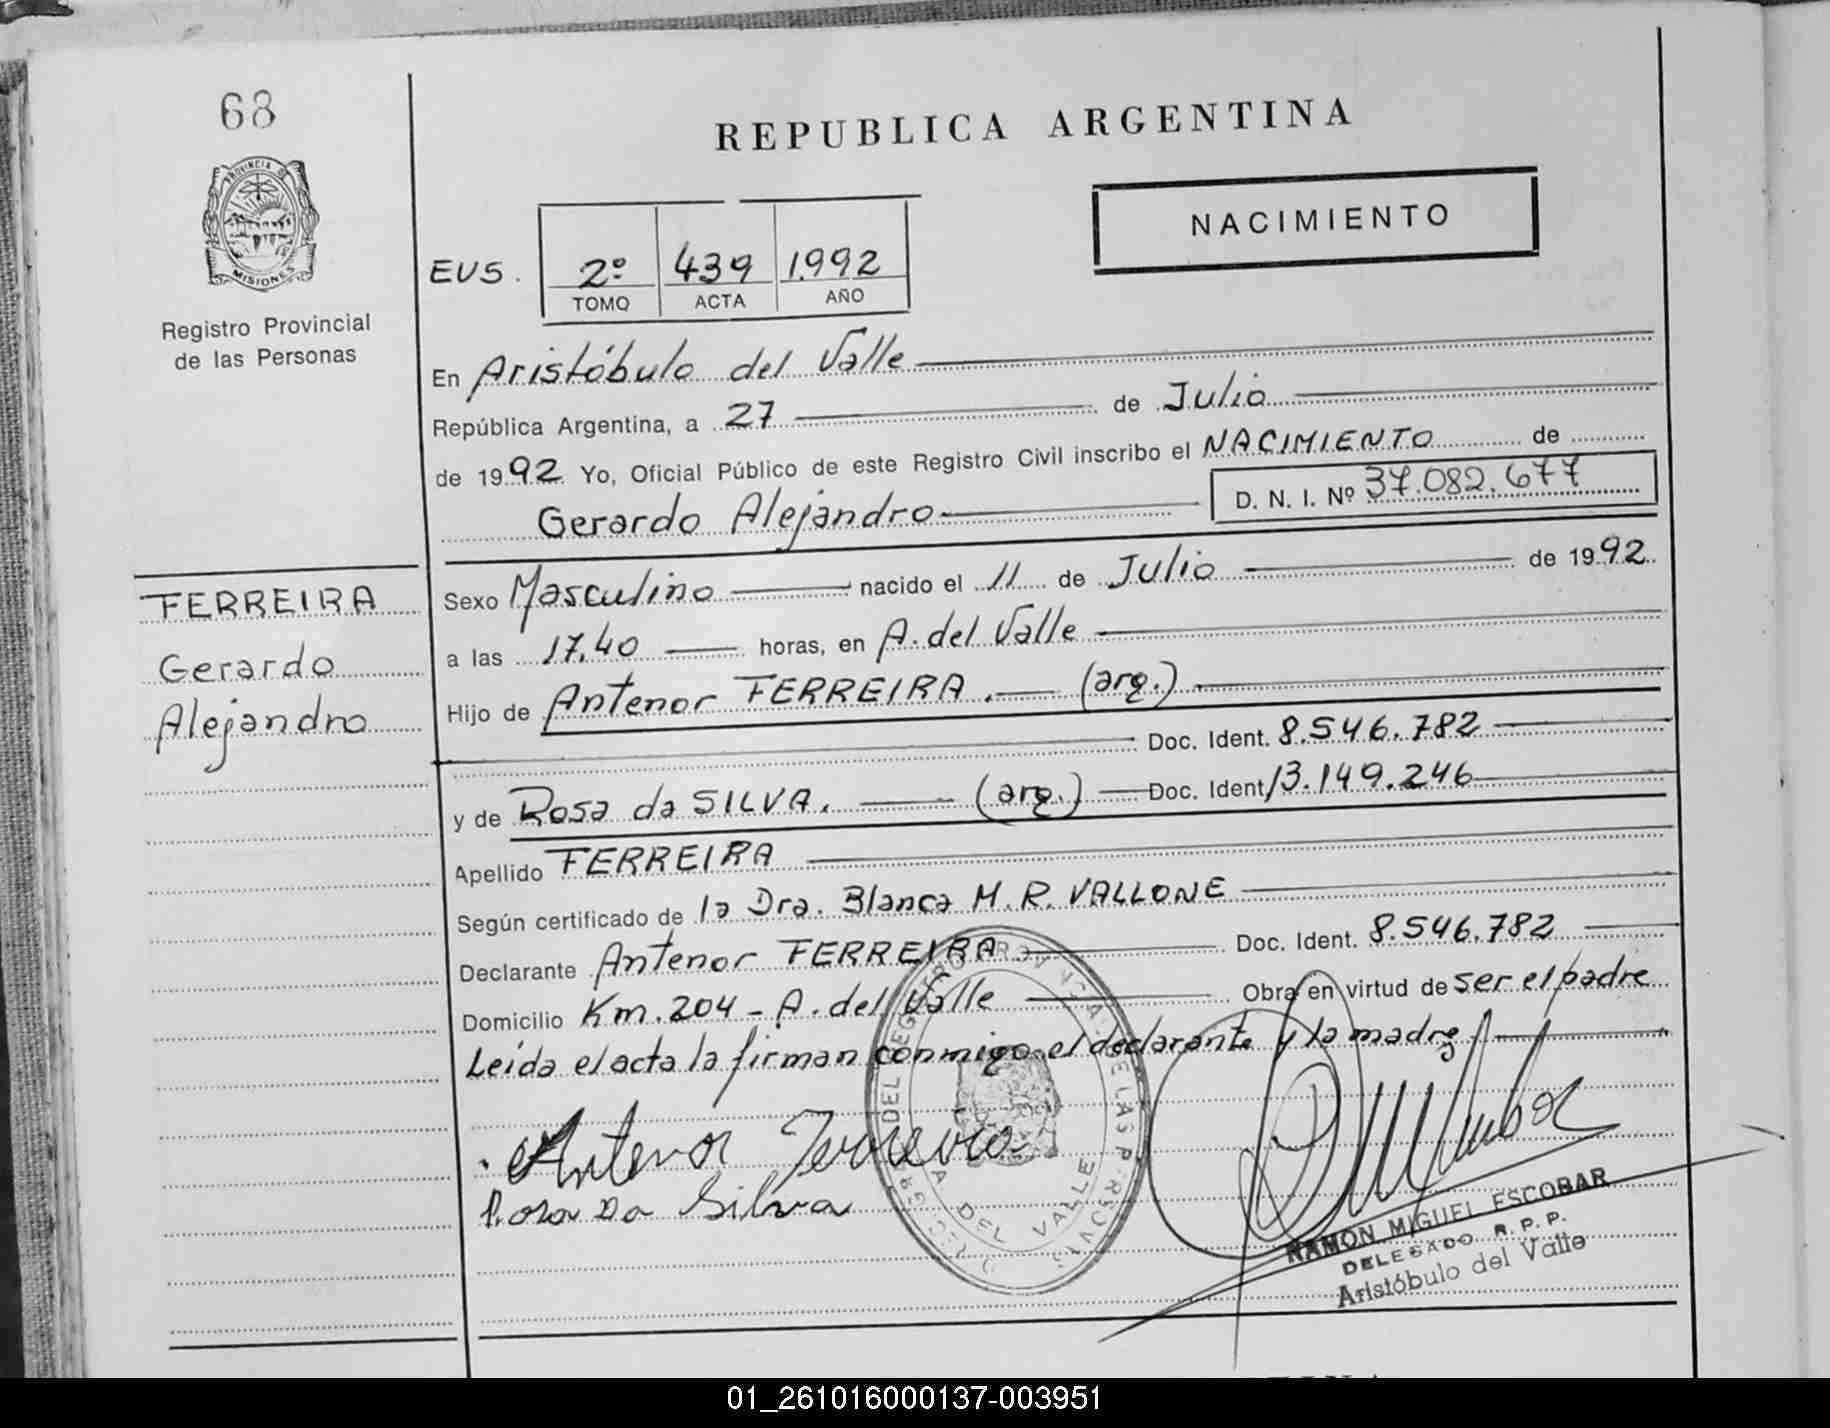 68
PROVINCIA DE
MISIONES
Registro Provincial
de las Personas
REPUBLICA ARGENTINA
NACIMIENTO
EUS. 2º 439 1.992
TOMO ACTA AÑO
En Aristóbulo del Valle
República Argentina, a 27 de Julio
de 1992 Yo, Oficial Público de este Registro Civil inscribo el NACIMIENTO de
Gerardo Alejandro D. N. I. Nº 37.082.677
FERREIRA
Gerardo
Alejandro
Sexo Masculino nacido el 11 de Julio de 1992
a las 17,40 horas, en A. del Valle
Hijo de Antenor FERREIRA. (arg.)
Doc. Ident. 8.546.782
y de Rosa da SILVA. (arg.) Doc. Ident 13.149.246
Apellido FERREIRA
Según certificado de la Dra. Blanca M. R. VALLONE
Declarante Antenor FERREIRA Doc. Ident. 8.546.782
Domicilio Km. 204 - A. del Valle Obra en virtud de ser el padre
Leída el acta la firman conmigo el declarante y la madre
Antenor Ferreira
Rosa Da Silva
A DEL VALLE
RAMON MIGUEL ESCOBAR
DELEGADO R. P. P.
Aristóbulo del Valle
01_261016000137-003951